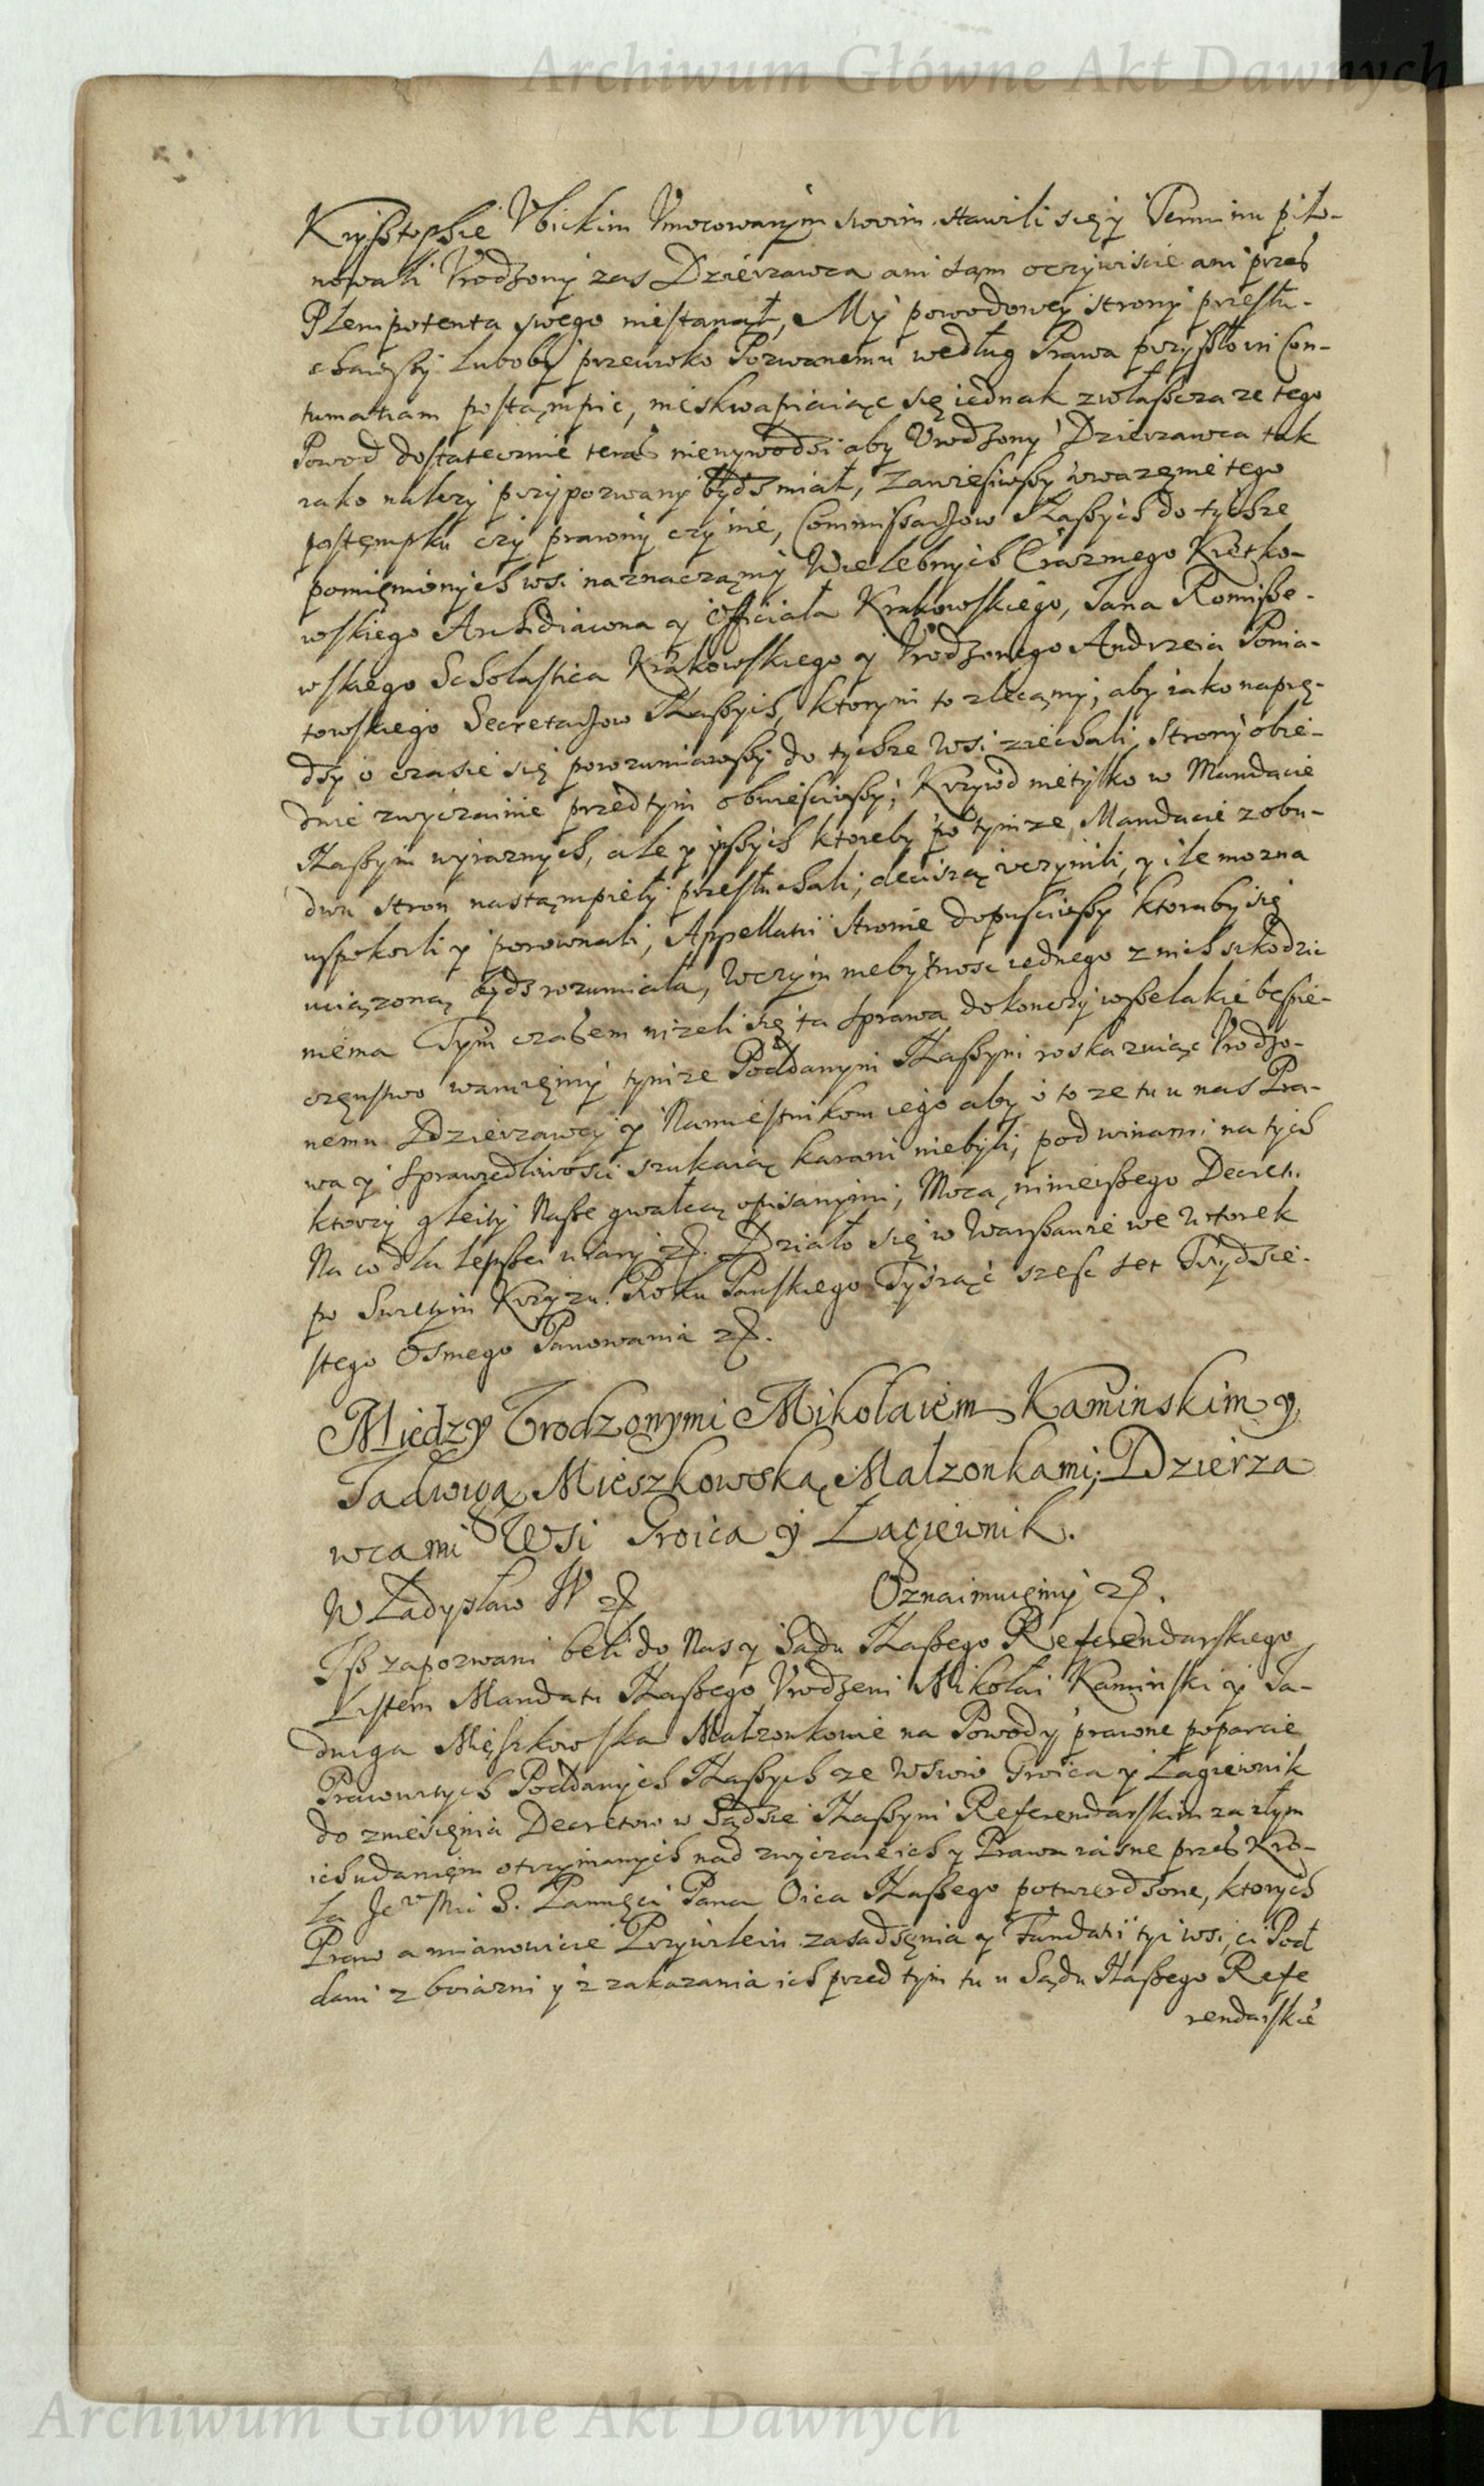 Archiwum Główne Akt Dawnych
Kryßtophie Vbickim Vmocowanym swoim stawili się y Terminu pilo-
nowali Vrodzony zas Dzierzawca ani sam oczywiscie ani przes
Plenipotenta swego niestanął, My powodowey strony przesłu-
chawszy luboby przeciwko Pozwanemu według Prawa przyszło in Con-
tumatiam postąmpic, nieskwapiaiąc się iednak zwłaszcza ze tego
Powod dostatecznie teras niewywodzi aby Vrodzony Dzierzawca tak
iako nalezy przypozwany bydz miał, Zawiesiwszy uwazęnie tego
postęmpku czy prawny czy nie, Commissarzow Naßych do tychze
pomięnionych wsi naznaczamy Wielebnych Erazmego Kretko-
wskiego Archidiacona y Officiała Krakowskiego, Jana Romisze-
wskiego Scholastica Krakowskiego y Vrodzonego Andrzeia Ponia-
towskiego Secretarzow Naßych, ktorym to zlecamy, aby iako naprę-
dzy o czasie się porozumiawszy do tychze Wsi ziechali, Strony obie-
dwie zwyczainie przedtym obwiesciwszy, Krzywd nietylko w Mandacie
Naßym wyraznych, ale y inßych ktoreby po tymze Mandacie z obu-
dwu stron nastąmpieły przesłuchali, decisią uczynili, y ile mozna
uspokoili y porownali, Appellatii stronie dopusciwszy ktoraby się
uciązoną bydz rozumiała, Wczym niebytnosc iednego z nich szkodzic
niema Tym czasem nizeli się ta sprawa dokonczy wszelakie bespie-
częnstwo waruięmy tymze Poddanym Naßym roskazuiąc Vrodzo-
nemu Dzierzawcy y Namiestnikom iego aby o to ze tu u nas Pra-
wa y Sprawiedliwosci szukaią karani niebyli, pod winami na tych
ktorzy gleity Naße gwałcą opisanymi, Mocą ninieyßego Decretu
Na co dla lepßei wiary etc. Działo się w Warßawie we Wtorek
po Swiętym Krzyzu. Roku Panskiego Tysiąc szesc set Trzydzie-
stego Osmego Panowania etc.
Miedzy Vrodzonymi Mikołaiem Kaminskim y
Jadwigą Mieszkowską Malzonkami, Dzierza
wcami Wsi Groica y Łagiewnik.
Władysław IV etc Oznaimuięmy etc.
Iß zapozwani beli do Nas y Sądu Naßego Referendarskiego
Listem Mandatu Naßego Vrodzeni Mikołai Kaminski y Ja-
dwiga Mięszkowska Małzonkowie na Powody prawne poparcie
Pracowitych Poddanych Naßych ze Wsiow Groica y Łagiewnik
do zniesięnia Decretow w Sądzie Naßym Referendarskim za złym
ich udanięm otrzymanych nad zwyczaie ich y Prawa iasne przes Kro-
la Je° Mci S. Pamięci Pana Oica Naßego potwierdzone, ktorych
Praw a mianowicie Przywileiu zasadzęnia y Fundatii tyi wsi, ci Pod
dani z boiazni y z zakazania ich przed tym tu u Sądu Naßego Refe
rendarskie
Archiwum Główne Akt Dawnych